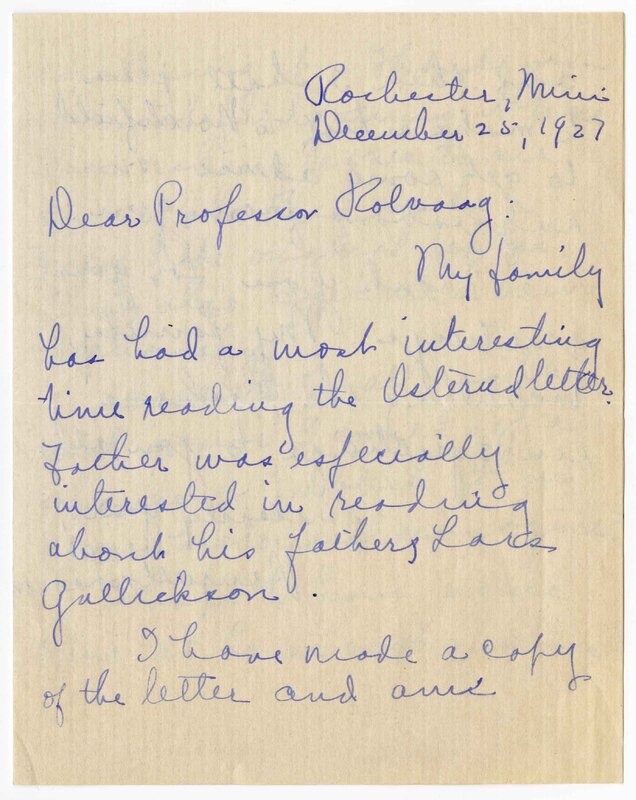 Rochester, Minn
December 25, 1927
Dear Professor Rolvaag:
My family
has had a most interesting
time reading the Osterud letter.
Father was especially
interested in reading
about his father, Lars
Gullickson.
I have made a copy
of the letter and am